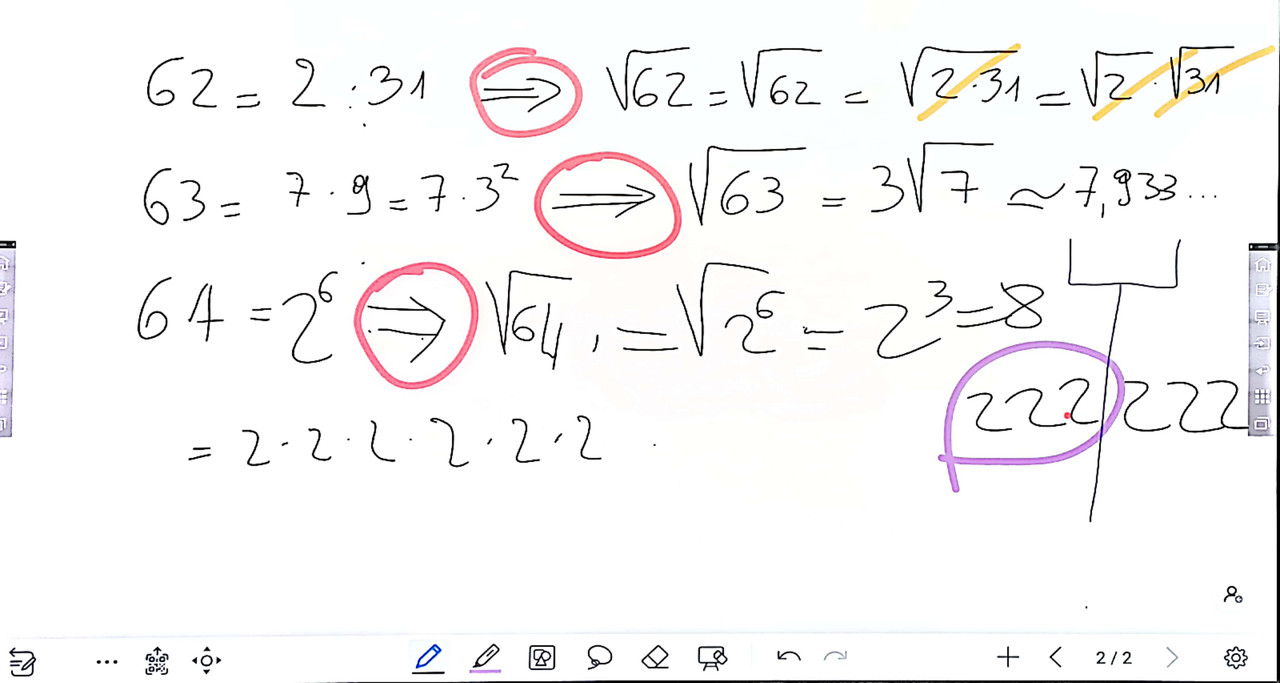 62 = 2 · 31 ⇒ √62 = √62 = √2·31 = √2 · √31
63 = 7 · 9 = 7 · 3² ⇒ √63 = 3√7 ≃ 7,933...
64 = 2⁶ ⇒ √64 = √2⁶ = 2³ = 8
222 222
= 2 · 2 · 2 · 2 · 2 · 2
2/2